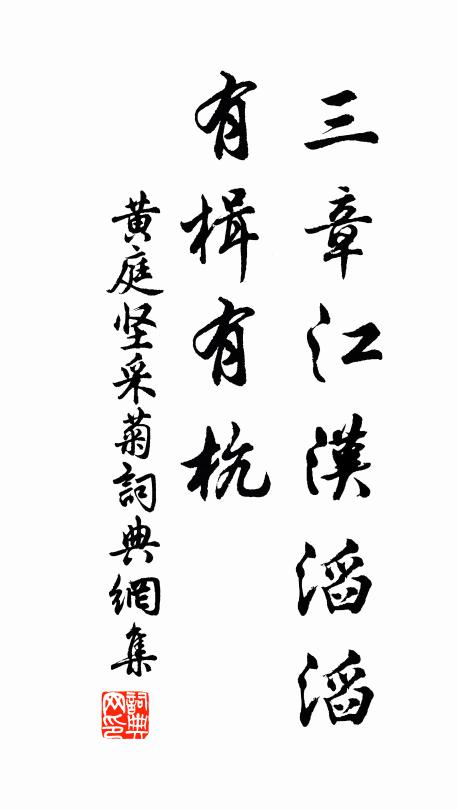 三章江漢滔滔
有楫有杭
黄庭坚采菊詞典網集
詞典
网印